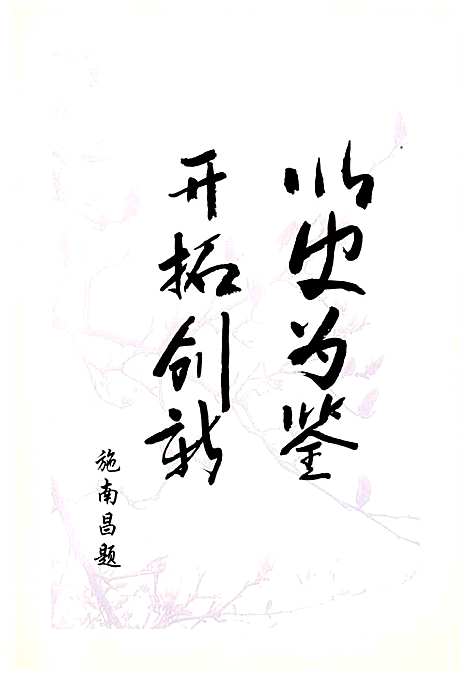 以史为鉴
开拓创新
施南昌题